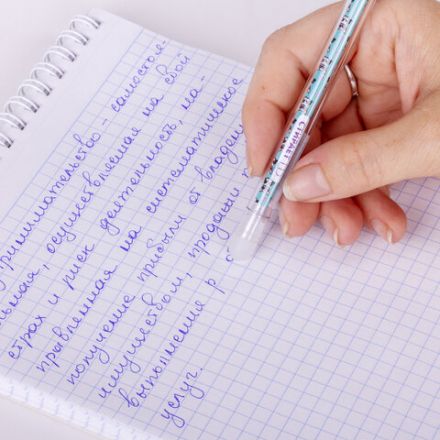 принимательство - самостоя-
льная, осуществляемая на свой
страх и риск деятельность, на-
правленная на систематическое
получение прибыли от владен
имуществом, продажи
выполнения р
услуг.
СТИРАЕТ